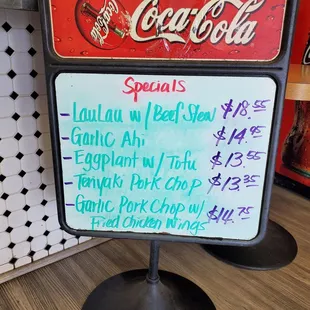 Coca-Cola
Specials
- LauLau w/ Beef Stew $18.55
- Garlic Ahi $14.95
- Eggplant w/ Tofu $13.55
- Teriyaki Pork Chop $13.35
- Garlic Pork Chop w/
Fried Chicken Wings $14.75